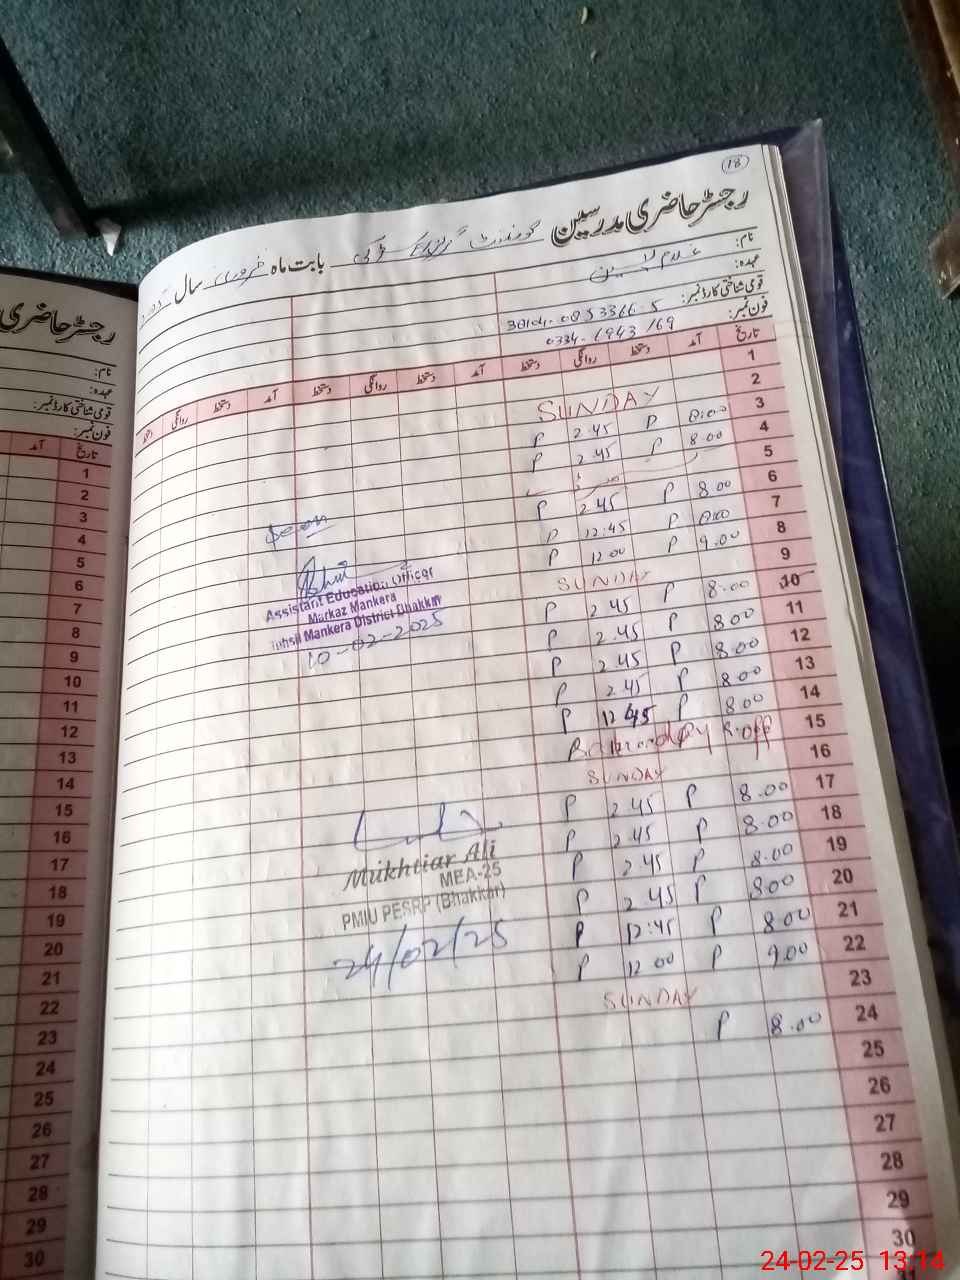 18
رجسٹر حاضری مدرسین گورنمنٹ گرلز بابت ماہ فروری سال
نام: غلام یٰسین
عہدہ:
قومی شناختی کارڈ نمبر: 38104-0853366-5
فون نمبر: 0334-6943169
تاریخ آمد دستخط روانگی دستخط آمد دستخط روانگی دستخط آمد دستخط روانگی دستخط
1
2 SUNDAY
3 8:00 P 2.45 P
4 8.00 P 2.45 P
5
6 8.00 P 2.45 P
7 8:00 P 12:45 P
8 9.00 P 12 00 P
9 SUNDAY
10 8.00 P 2.45 P
11 8.00 P 2.45 P
12 8.00 P 2.45 P
13 8.00 P 2.45 P
14 8.00 P 12 45 P
15 off
16 SUNDAY
17 8.00 P 2.45 P
18 8.00 P 2.45 P
19 8.00 P 2.45 P
20 8.00 P 2.45 P
21 8.00 P 12:45 P
22 9.00 P 12 00 P
23 SUNDAY
24 8.00 P
25
26
27
28
29
30
Seen
Assistant Education Officer
Markaz Mankera
Tehsil Mankera District Bhakkar
10-02-2025
Mukhtiar Ali
MEA-25
PMIU PESRP (Bhakkar)
24/02/25
رجسٹر حاضری
نام:
عہدہ:
قومی شناختی کارڈ نمبر:
فون نمبر:
تاریخ آمد
1
2
3
4
5
6
7
8
9
10
11
12
13
14
15
16
17
18
19
20
21
22
23
24
25
26
27
28
29
30
24-02-25 13:14